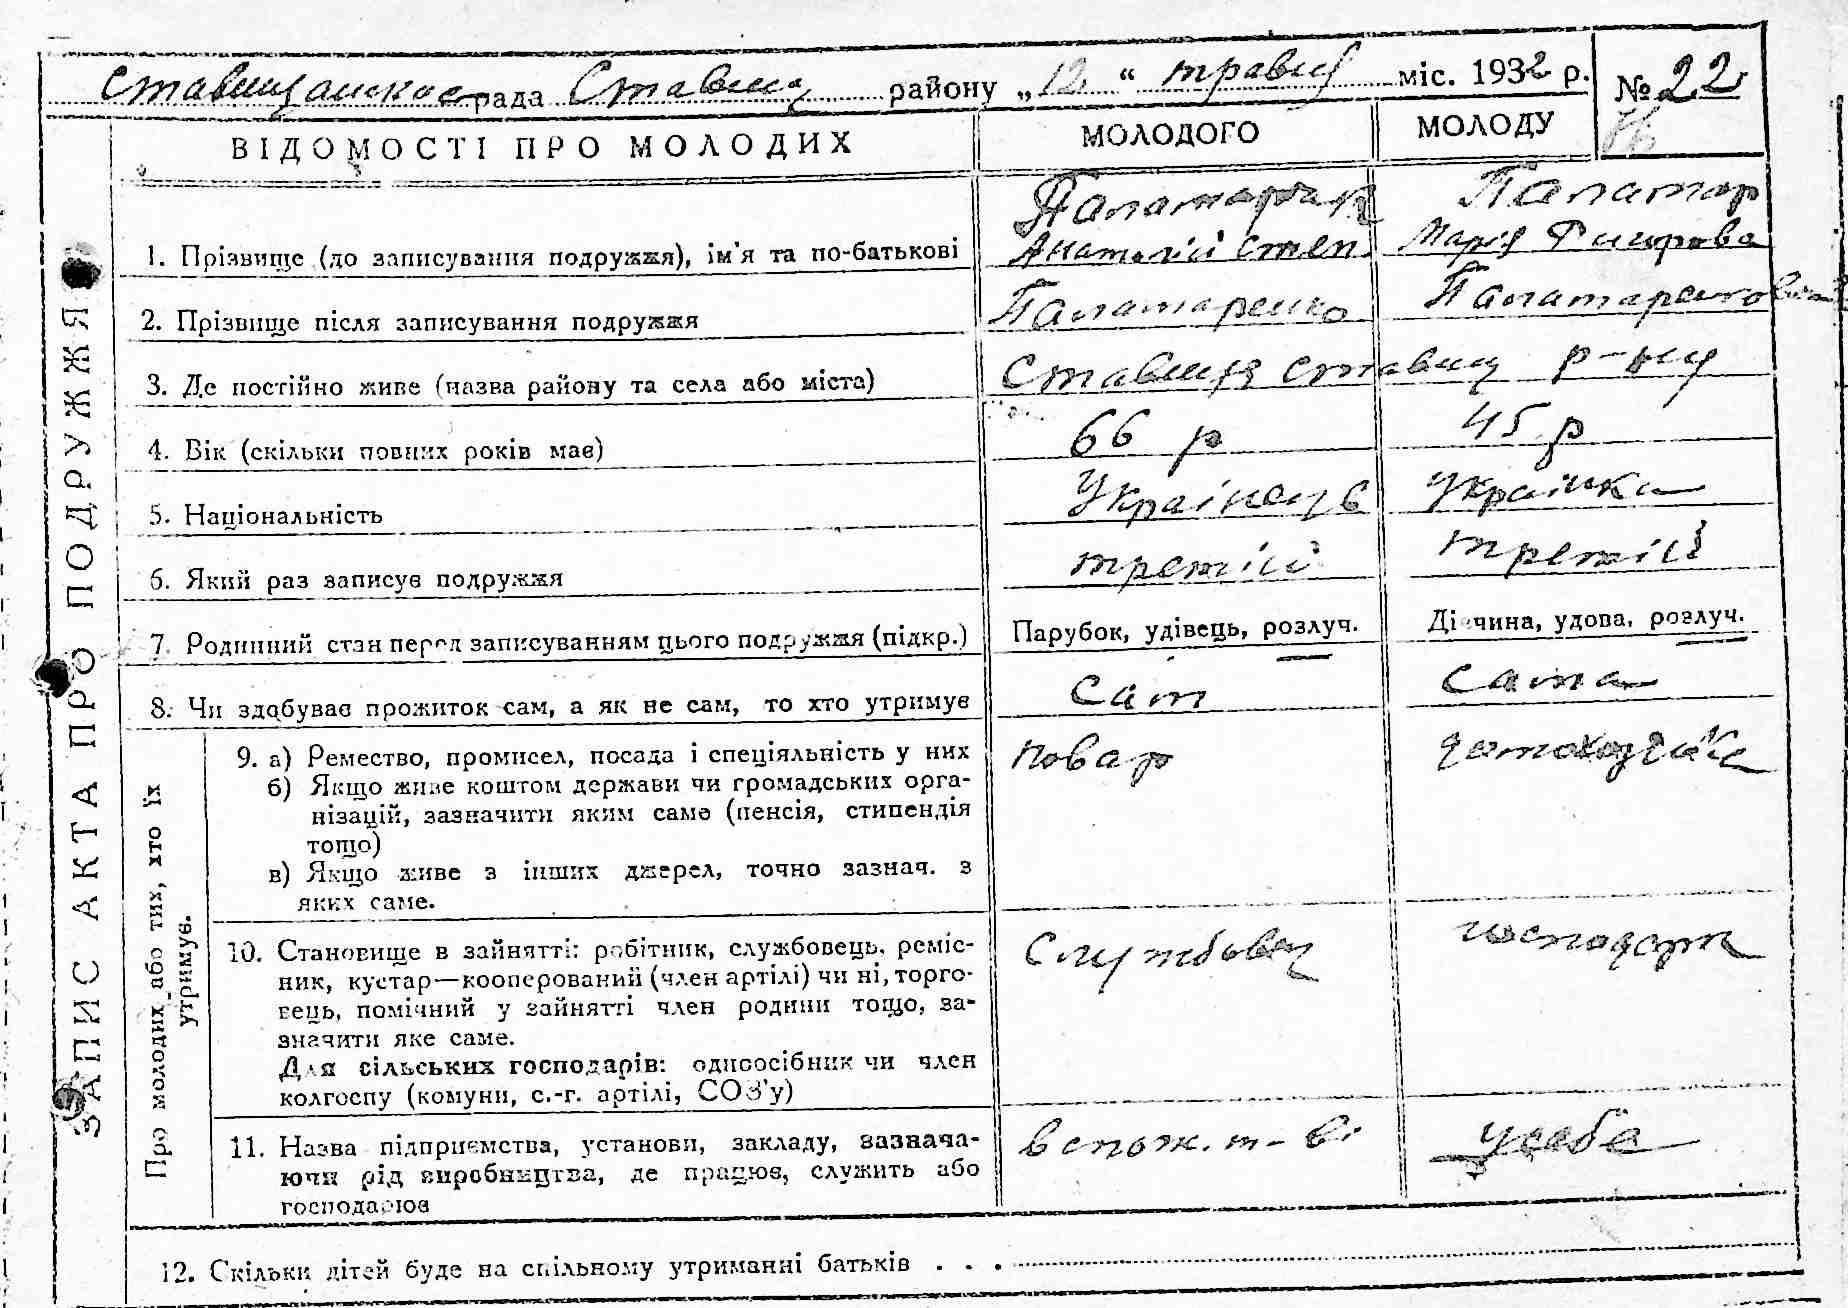 Ставищанскоє рада Ставищ району „12“ травня міс. 1932 р. № 22
ВІДОМОСТІ ПРО МОЛОДИХ МОЛОДОГО МОЛОДУ
ЗАПИС АКТА ПРО ПОДРУЖЖЯ
Палатар
1. Прізвище (до записування подружжя), ім'я та по-батькові Анатолій Степ. Марія
2. Прізвище після записування подружжя Палатаренко
3. Де постійно живе (назва району та села або міста) Ставища Ставищ р-ну
4. Вік (скільки повних років має) 66 р 45 р
5. Національність Українець Українка
6. Який раз записує подружжя третій третій
7. Родинний стан перед записуванням цього подружжя (підкр.) Парубок, удівець, розлуч. Дівчина, удова, розлуч.
8. Чи здобуває прожиток сам, а як не сам, то хто утримує Сам Сама
Про молодих або тих, хто їх
утримує.
9. а) Ремество, промисел, посада і спеціяльність у них повар домохозяйка
б) Якщо живе коштом держави чи громадських орга-
нізацій, зазначити яким саме (пенсія, стипендія
тощо)
в) Якщо живе з інших джерел, точно зазнач. з
яких саме.
10. Становище в зайнятті: робітник, службовець, реміс- Службовец господар
ник, кустар—кооперований (член артілі) чи ні, торго-
вець, помічний у зайнятті член родини тощо, за-
значити яке саме.
Для сільських господарів: одноосібник чи член
колгоспу (комуни, с.-г. артілі, СОЗ'у)
11. Назва підприємства, установи, закладу, зазнача- в спож. т-ві усебе
ючи рід виробництва, де працює, служить або
господарює
12. Скільки дітей буде на спільному утриманні батьків . . .